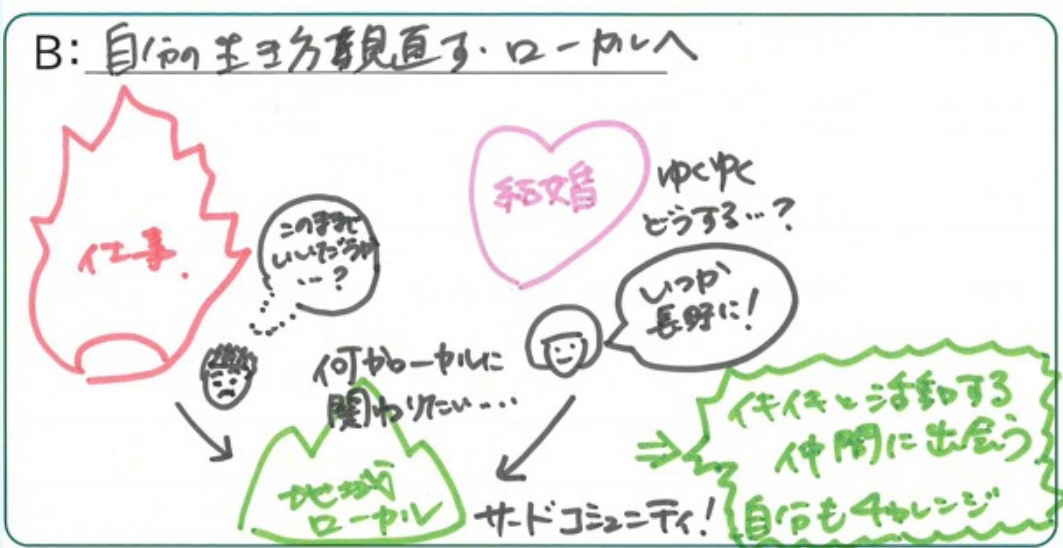 B: 自分の生き方を見直す・ローカルへ
仕事.
このままで
いいだろうか
…?
結婚
ゆくゆく
どうする…?
いつか
長野に!
何かローカルに
関わりたい…
地域
ローカル
サードコミュニティ!
⇒
イキイキと活動する
仲間に出会う
自分もチャレンジ